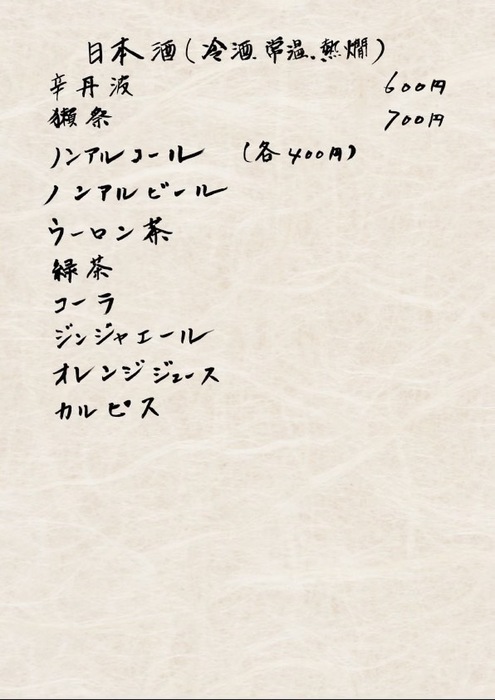 日本酒(冷酒.常温.熱燗)
辛丹波 600円
獺祭 700円
ノンアルコール (各400円)
ノンアルビール
ウーロン茶
緑茶
コーラ
ジンジャエール
オレンジジュース
カルピス